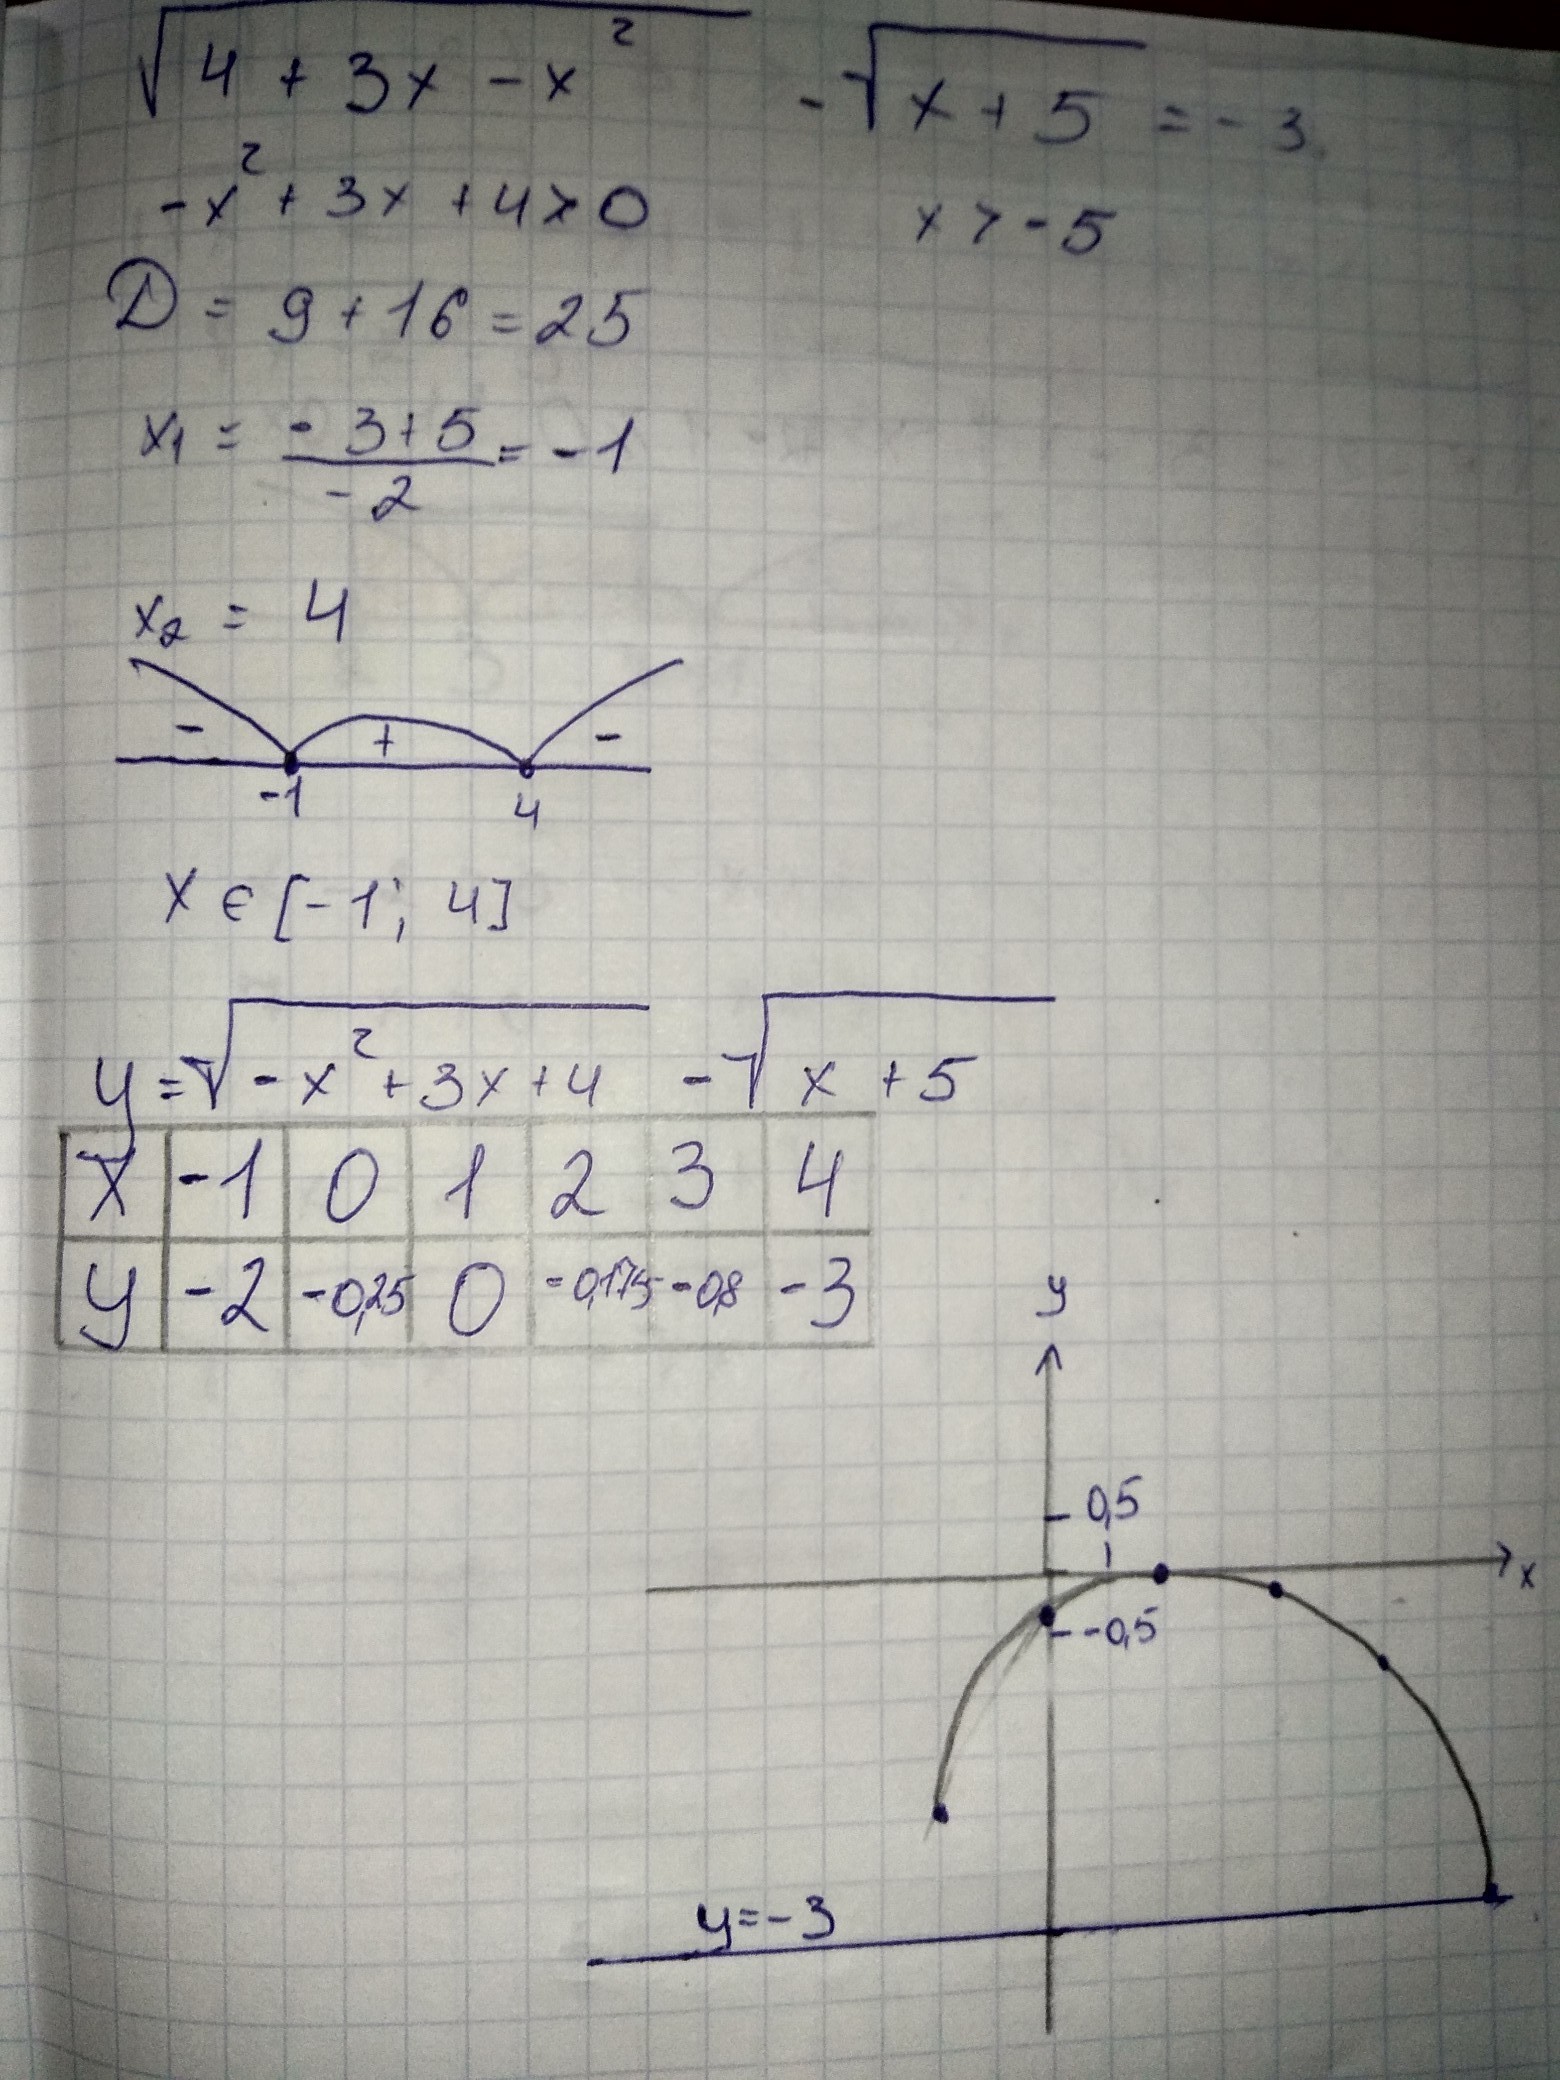 √(4 + 3x - x²) - √(x + 5) = -3
-x² + 3x + 4 ≥ 0 x > -5
D = 9 + 16 = 25
x₁ = (-3+5)/(-2) = -1
x₂ = 4
- + -
-1 4
x ∈ [-1; 4]
y = √(-x² + 3x + 4) - √(x + 5)
x -1 0 1 2 3 4
y -2 -0,25 0 -0,175 -0,8 -3
y
0,5
1
x
-0,5
y=-3